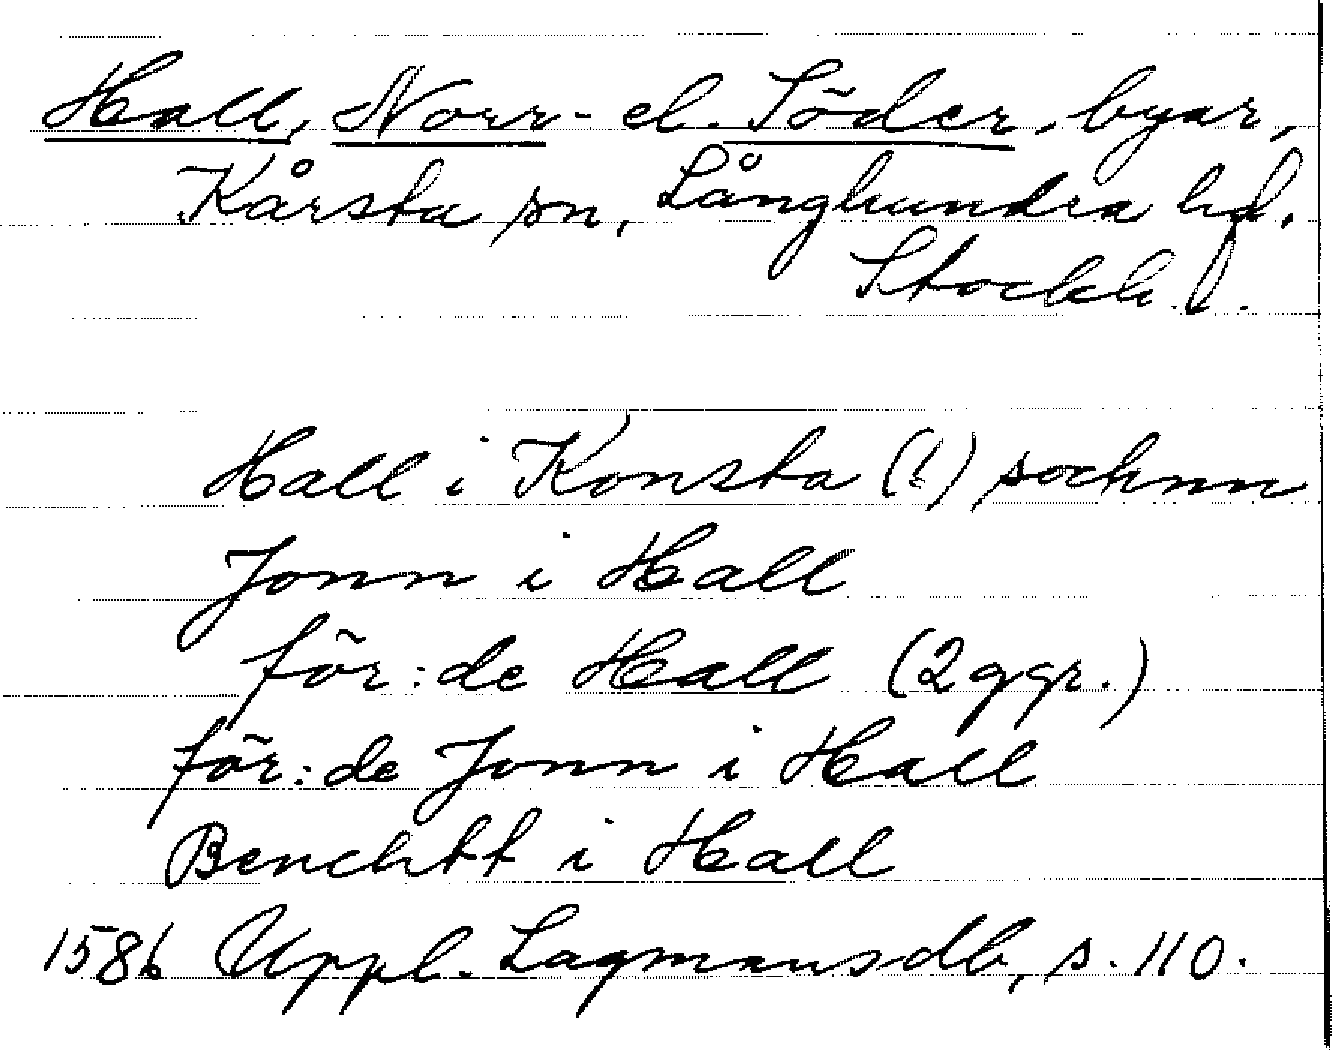 Hall, Norr- el. Söder, byar,
Kårsta sn, Långhundra hd.
Stockh. l.
Hall i Konsta (!) sochnn
Jonn i Hall
för:de Hall (2 ggr.)
för:de Jonn i Hall
Benchtt i Hall
1586 Uppl. Lagmansdb, s. 110.